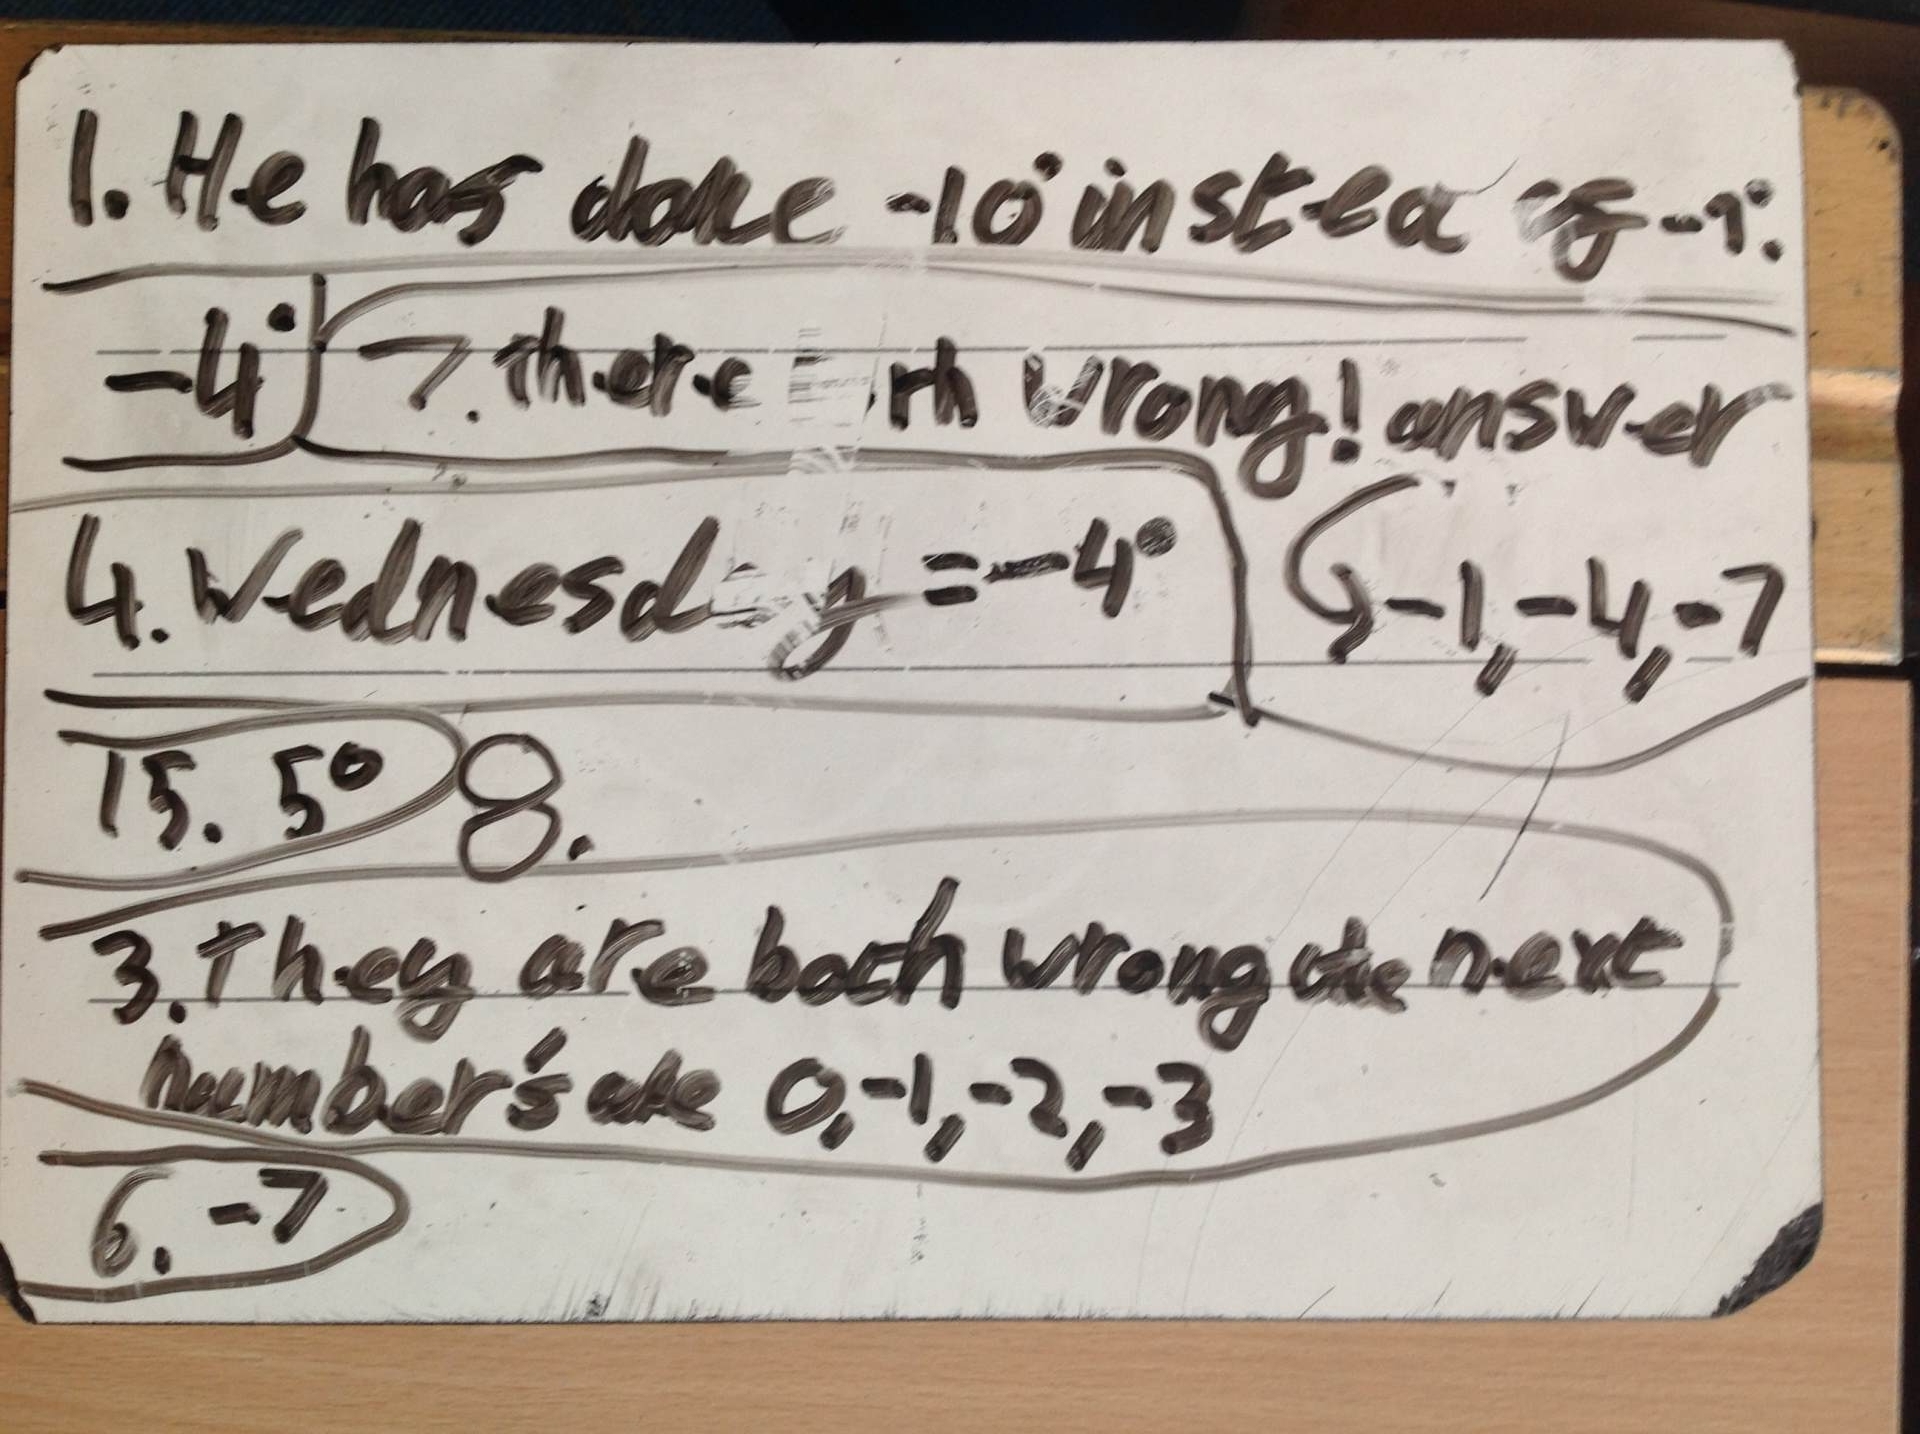 1. He has done -10° instea of -1°.
-4°
7. there wrong! answer
-1, -4, -7
4. Wednesd y = -4°
15. 5°
8.
3. They are both wrong the next
number's are 0, -1, -2, -3
6. -7